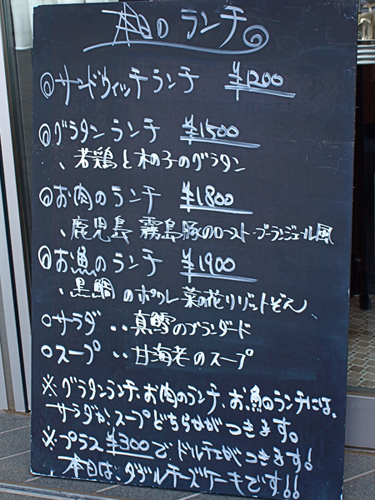 本日のランチ
◎サンドウィッチランチ ¥1200
◎グラタンランチ ¥1500
、若鶏と木の子のグラタン
◎お肉のランチ ¥1800
、鹿児島 霧島豚のロースト・ブーランジェール風
◎お魚のランチ ¥1900
、黒鯛のポワレ 菜の花リゾットぞえ、
○サラダ ‥真鱈のブランダード
○スープ ‥甘海老のスープ
※グラタンランチ、お肉のランチ、お魚のランチには、
サラダか、スープどちらかがつきます。
※プラス¥300でドルチェがつきます!
本日は、ダブルチーズケーキです!!